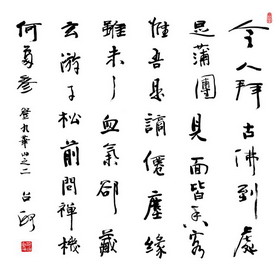 令人拜古佛到處
是蒲團見面皆香客
惟吾是謫僊塵緣
雖未了血氣卻
玄游子松前問禪機
何處參
登九華山之二